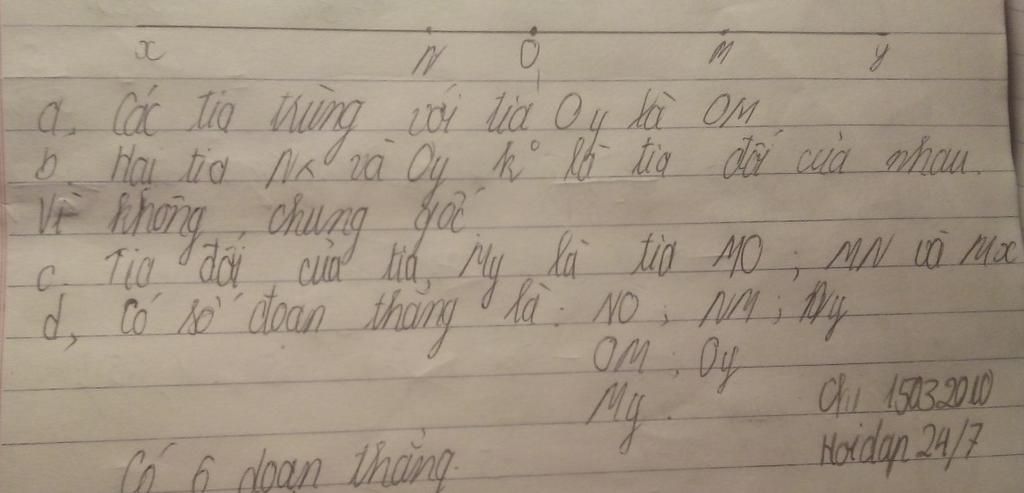 x N O M y
a, Các tia trùng với tia Oy là OM
b. Hai tia Nx và Oy k° là tia đối của nhau.
Vì không chung gốc
c. Tia đối của tia My là tia MO ; MN và Mx
d, Có số đoạn thẳng là: NO ; NM ; Ny
OM ; Oy
My.
Chi 15032010
Có 6 đoạn thẳng.
Hoidap 24/7